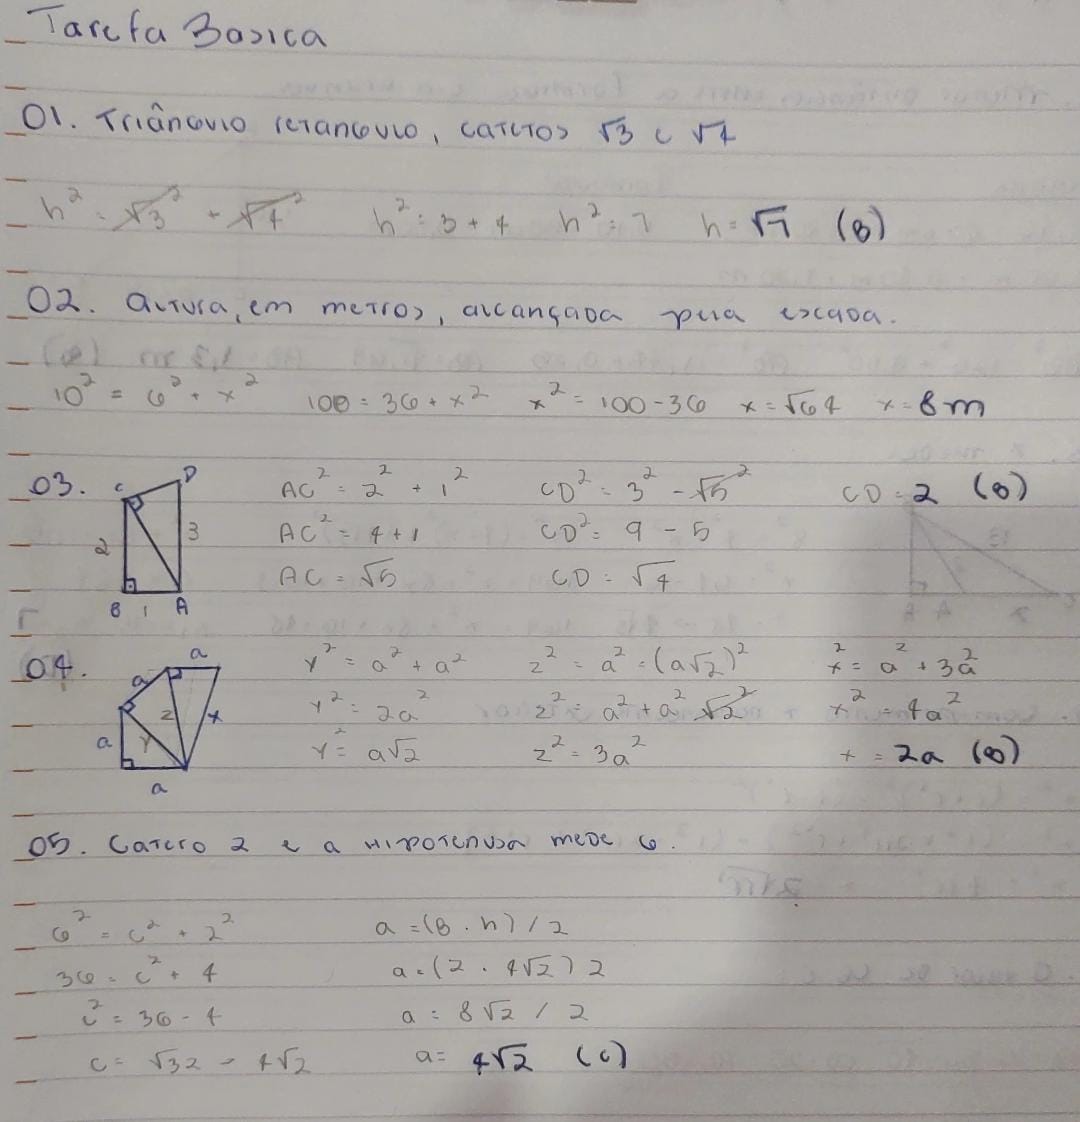 Tarefa Basica
01. Triângulo retangulo, catetos √3 e √4
h² = √3² + √4² h² = 3 + 4 h² = 7 h = √7 (B)
02. altura, em metros, alcançada pela escada.
10² = 6² + x² 100 = 36 + x² x² = 100 - 36 x = √64 x = 8m
03. C D 2 3 B 1 A
AC² = 2² + 1² CD² = 3² - √5² CD = 2 (B)
AC² = 4 + 1 CD² = 9 - 5
AC = √5 CD = √4
04. a a a a y z x
y² = a² + a² z² = a² = (a√2)² x² = a² + 3a²
y² = 2a² z² = a² + a² √2² x² = 4a²
y² = a√2 z² = 3a² x = 2a (B)
05. Cateto 2 e a Hipotenusa mede 6.
6² = c² + 2² a = (B . h) / 2
36 = c² + 4 a = (2 . 4√2) 2
c² = 36 - 4 a = 8√2 / 2
c = √32 = 4√2 a = 4√2 (C)